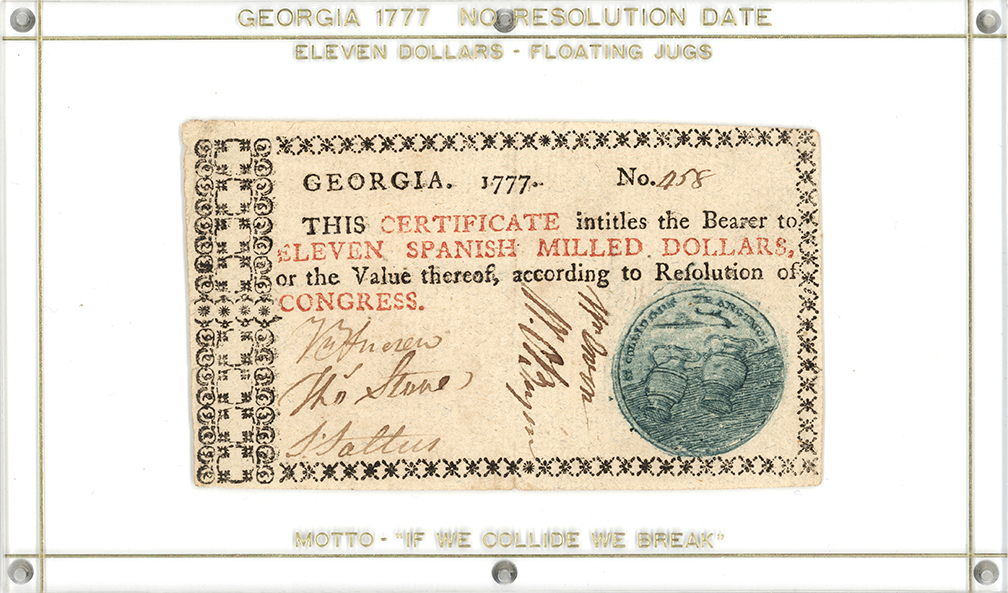 GEORGIA 1777 NO RESOLUTION DATE
ELEVEN DOLLARS - FLOATING JUGS
GEORGIA. 1777. No. 458
THIS CERTIFICATE intitles the Bearer to
ELEVEN SPANISH MILLED DOLLARS,
or the Value thereof, according to Resolution of
CONGRESS.
Thos Stone
S. Saltus
MOTTO - "IF WE COLLIDE WE BREAK"